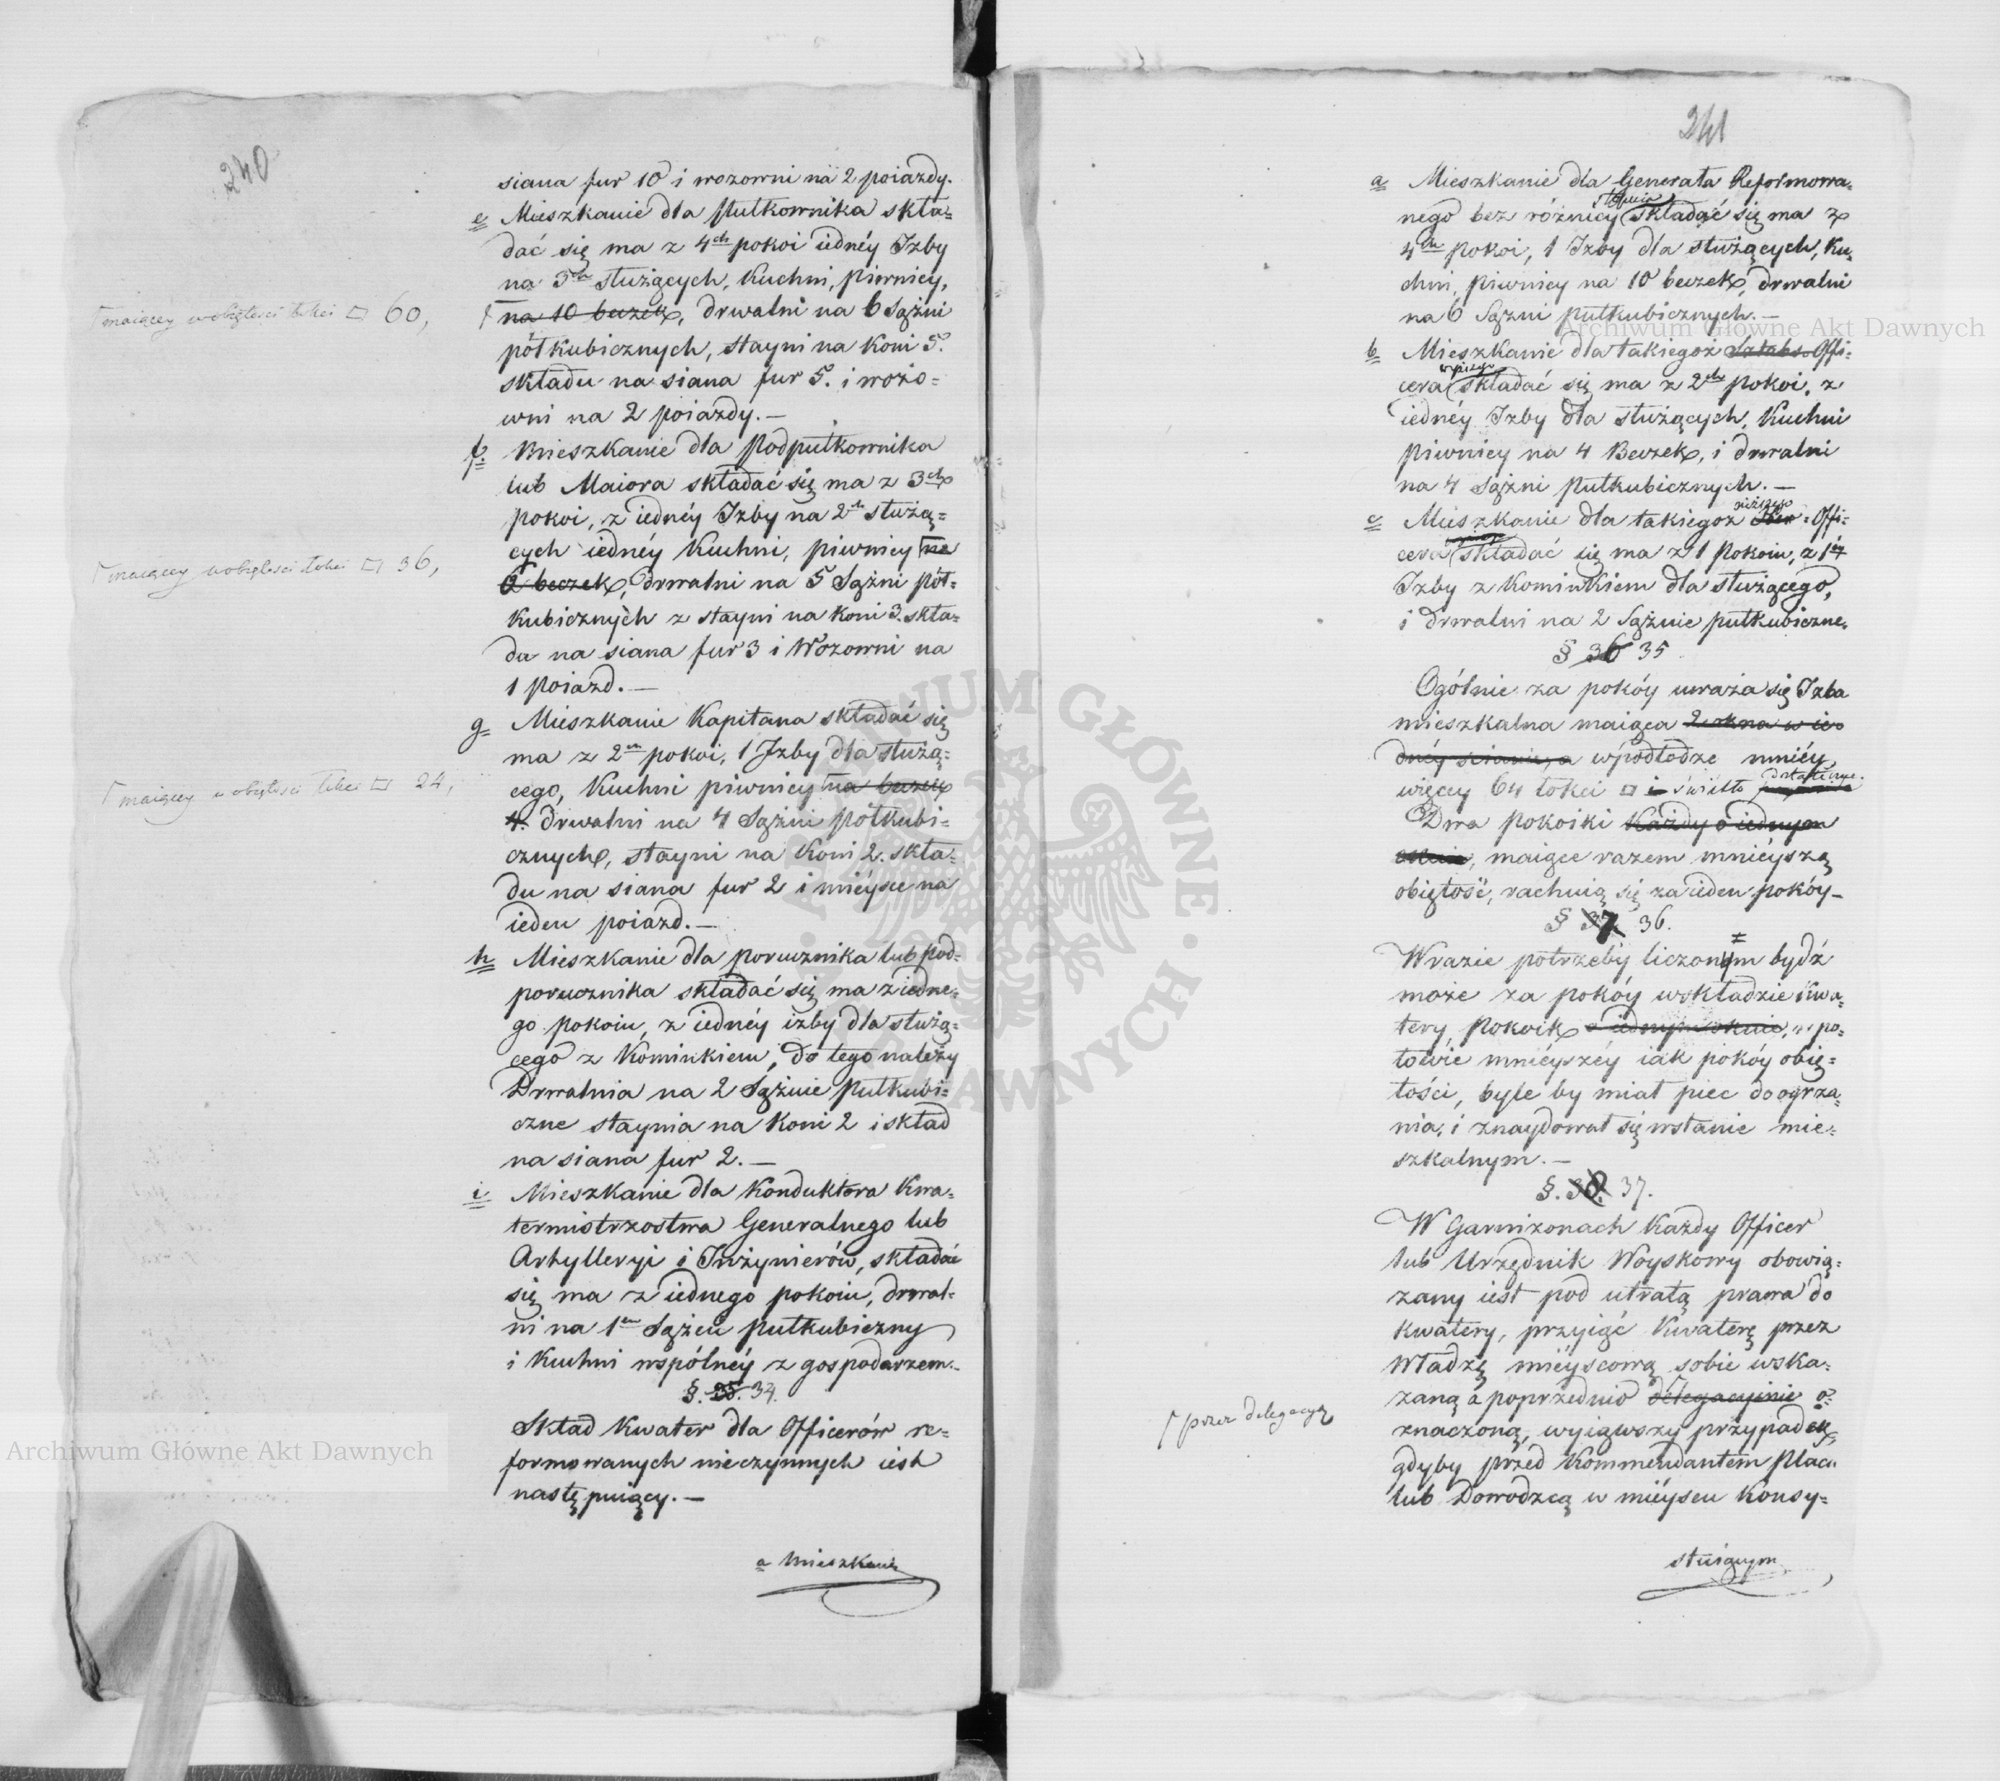 240
siana fur 10 i wozowni na 2 poiazdy.
e Mieszkanie dla Pułkownika skła=
dać się ma z 4ch pokoi iednéy Izby
na 3ch służących, Kuchni, piwnicy,
na 10 beczek, drwalni na 6 Sążni
półkubicznych, stayni na Koni 5.
składu na siana fur 5. i wozo=
wni na 2 poiazdy.—
f. Mieszkanie dla Podpułkownika
lub Maiora składać się ma z 3ch
pokoi, z iednéy Izby na 2ch służą=
cych iednéy Kuchni, piwnicy na
6 beczek, drwalni na 5 Sążni pół=
kubicznych z stayni na Koni 3. skła=
du na siana fur 3 i Wozowni na
1 Poiazd.—
g. Mieszkanie Kapitana składać się
ma z 2ch pokoi, 1 Izby dla służą=
cego, Kuchni piwnicy na beczek
4. drwalni na 4 Sążni półkubi=
cznych, stayni na Koni 2. skła=
du na siana fur 2 i mieysce na
ieden poiazd.—
h Mieszkanie dla porucznika lub pod=
porucznika składać się ma z iedne=
go pokoiu, z iednéy izby dla służą=
cego z Kominkiem, do tego należy
Drwalnia na 2 Sążnie pułkubi=
czne staynia na Koni 2 i skład
na siana fur 2.—
i Mieszkanie dla Konduktora Kwa=
termistrzostwa Generalnego lub
Artylleryi i Inżynierów, składać
się ma z iednego pokoiu, drwal=
ni na 1en Sążeń pułkubiczny
i Kuchni wspólnéy z gospodarzem.
§. 35. 34.
Skład Kwater dla Officerów re=
formowanych nieczynnych iest
następuiący.—
a Mieszkanie
maiącey w obiętości łokci □ 60,
maiącey w obiętości łokci □ 36,
maiącey w obiętości łokci □ 24,
241
a Mieszkanie dla Generała Reformowa=
stopnia
nego bez różnicy składać się ma z
4ch pokoi, 1 Izby dla służących, Ku=
chni, piwnicy na 10 beczek, drwalni
na 6 Sążni pułkubicznych.—
b Mieszkanie dla takiegoż Sztabs-Offi=
wyższego
cera składać się ma z 2ch pokoi, z
iednéy Izby dla służących, Kuchni
piwnicy na 4 Beczek, i drwalni
na 4 Sążni pułkubicznych.—
niższego
c Mieszkanie dla takiegoż Ober=Offi=
cera składać się ma z 1 pokoiu, z 1éy
Izby z Kominkiem dla służącego,
i drwalni na 2 Sążnie pułkubiczne.
§ 36 35
Ogólnie za pokóy uważa się Izba
mieszkalna maiąca 2 okna w ie=
dnéy scianie, a w podłodze mniéy
dostateczne.
więcey 64 łokci □ i światło
Dwa pokoiki każdy o iednym
oknie, maiące razem mniéyszą
obiętość, rachuią się za ieden pokóy—
§ 37 36.
W razie potrzeby liczonym bydź
może za pokóy w składzie Kwa=
tery, pokoik o iednym oknie, w po=
łowie mniéyszéy iak pokóy obię=
tości, byle by miał piec do ogrza=
nia, i znaydował się w stanie mie=
szkalnym.—
§. 38. 37.
W Garnizonach Każdy Officer
lub Urzędnik Woyskowy obowią=
zany iest pod utratą prawa do
kwatery, przyiąć Kwaterę przez
Władzę mieyscową sobie wska=
zaną a poprzednio delegacyinie o=
znaczoną, wyiąwszy przypadek,
gdyby przed Kommendantem Placu
lub Dowódzcą w mieyscu Konsy=
stuiącym
przez delegacyą
Archiwum Główne Akt Dawnych
Archiwum Główne Akt Dawnych
ARCHIWUM GŁÓWNE AKT DAWNYCH